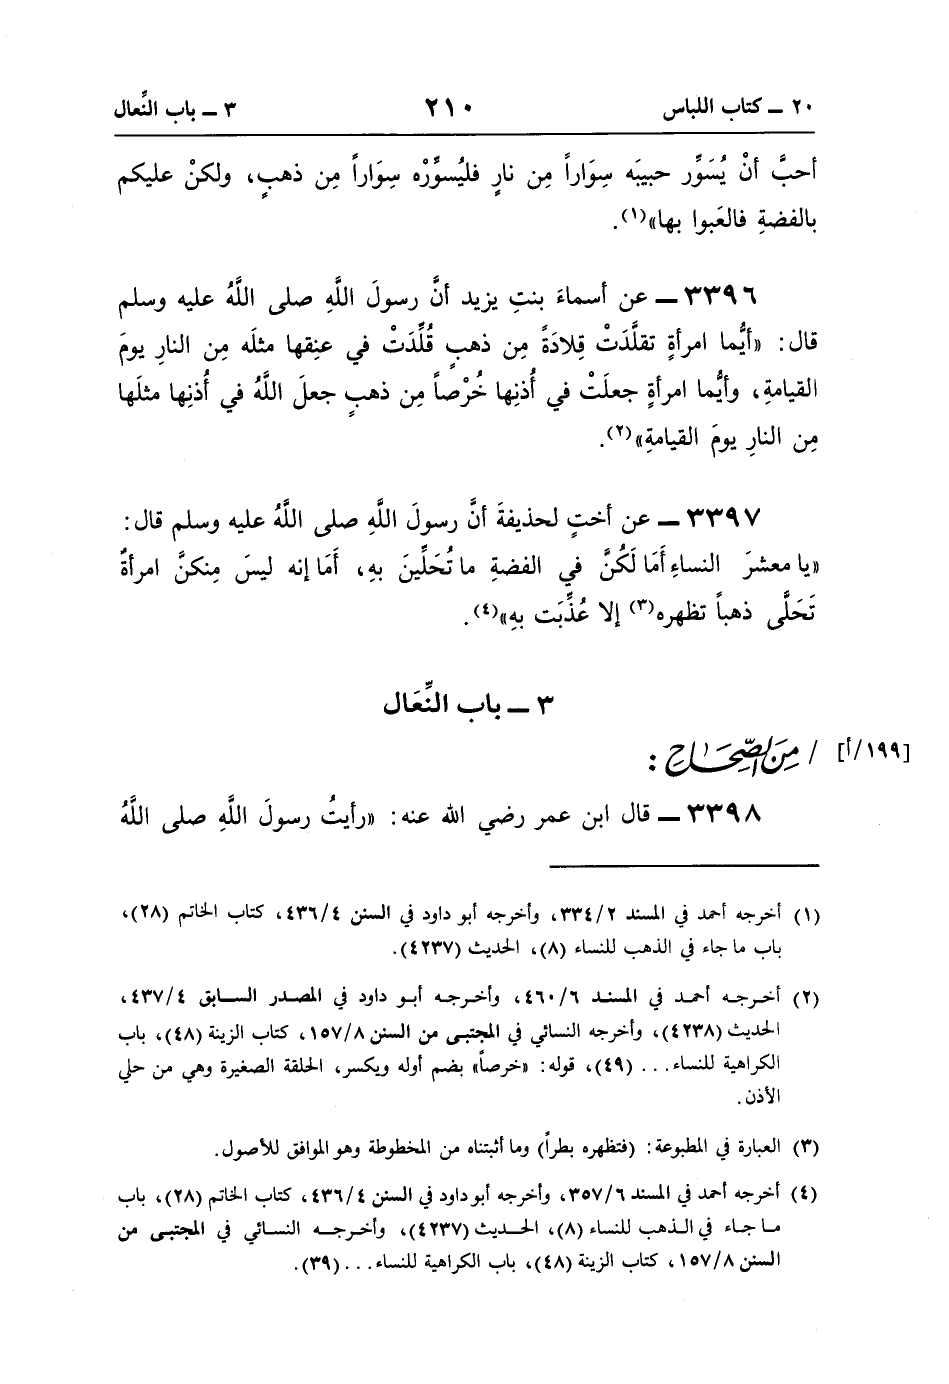 ٢٠ ـ كتاب اللباس ٢١٠ ٣ ـ باب النِّعال
أحبَّ أنْ يُسَوِّر حبيبَه سِوَاراً مِن نارٍ فليُسوِّرْه سِوَاراً مِن ذهبٍ، ولكنْ عليكم
بالفضةِ فالعَبوا بها»(١).
٣٣٩٦ ـ عن أسماءَ بنتِ يزيد أنَّ رسولَ اللَّهِ صلى اللَّهُ عليه وسلم
قال: «أيُّما امرأةٍ تقلَّدَتْ قِلادَةً مِن ذهبٍ قُلِّدَتْ في عنِقها مثلَه مِن النارِ يومَ
القيامةِ، وأيُّما امرأةٍ جعلَتْ في أُذنِها خُرْصاً مِن ذهبٍ جعلَ اللَّهُ في أُذنِها مثلَها
مِن النارِ يومَ القيامةِ»(٢).
٣٣٩٧ ـ عن أختٍ لحذيفةَ أنَّ رسولَ اللَّهِ صلى اللَّهُ عليه وسلم قال:
«يا معشرَ النساءِ أَمَا لَكُنَّ في الفضةِ ما تُحَلِّينَ بهِ، أَمَا إنه ليسَ مِنكنَّ امرأةٌ
تَحَلَّى ذهباً تظهره(٣) إلا عُذِّبَت بهِ»(٤).
٣ ـ باب النِّعَال
[١٩٩/أ] / مِنَ الصِّحَاحِ :
٣٣٩٨ ـ قال ابن عمر رضي الله عنه: «رأيتُ رسولَ اللَّهِ صلى اللَّهُ
(١) أخرجه أحمد في المسند ٣٣٤/٢، وأخرجه أبو داود في السنن ٤٣٦/٤، كتاب الخاتم (٢٨)،
باب ما جاء في الذهب للنساء (٨)، الحديث (٤٢٣٧).
(٢) أخرجه أحمد في المسند ٤٦٠/٦، وأخرجه أبو داود في المصدر السابق ٤٣٧/٤،
الحديث (٤٢٣٨)، وأخرجه النسائي في المجتبى من السنن ١٥٧/٨، كتاب الزينة (٤٨)، باب
الكراهية للنساء... (٤٩)، قوله: «خرصاً» بضم أوله ويكسر، الحلقة الصغيرة وهي من حلي
الأذن.
(٣) العبارة في المطبوعة: (فتظهره بطراً) وما أثبتناه من المخطوطة وهو الموافق للأصول.
(٤) أخرجه أحمد في المسند ٣٥٧/٦، وأخرجه أبو داود في السنن ٤٣٦/٤، كتاب الخاتم (٢٨)، باب
ما جاء في الذهب للنساء (٨)، الحديث (٤٢٣٧)، وأخرجه النسائي في المجتبى من
السنن ١٥٧/٨، كتاب الزينة (٤٨)، باب الكراهية للنساء... (٣٩).